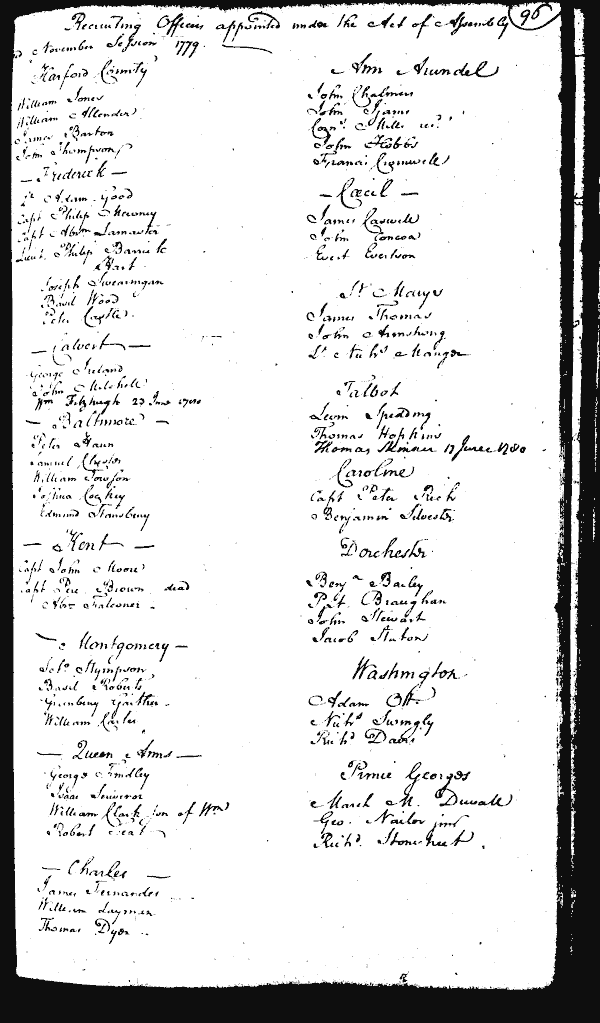 96
Recruiting Officers appointed under the Act of Assembly
November Session 1779.
Harford County
William Jones
William Allender
James Barton
John Thompson
— Frederick —
Lt Adam Good
Capt Philip Meroney
Capt Abrm Lamaster
Lieut. Philip Barrick
Hart
Joseph Swearingan
Basil Wood
Peter Castle.
— Calvert —
George Ireland
John Mitchell
Wm Fitzhugh 23 June 1780
— Baltimore —
Peter Haun
Samuel Chester
William Towson
Joshua Cockey
Edmund Stansbury
— Kent —
Capt John Moore
Capt Pere Brown dead
Abr. Falconer
— Montgomery —
Solo. Stympson
Basil Roberts
Greenbury Gaither
William Carter
— Queen Anns —
George Findley
Isaac
William Clark son of Wm
Robert
— Charles —
James Fernandes
William Layman
Thomas Dyer
Ann Arundel
John Chalmers
John Ijams
Corns. Mills
John Hobbs
Francis Cromwell
— Cæcil —
James Caswell
John Toncoa
Evert Evertson
St. Marys
James Thomas
John Armstrong
Lt Richd Manger
Talbot
Levin Spedding
Thomas Hopkins
Thomas Skinner 17 June 1780
Caroline
Capt Peter Rich
Benjamin Silvester
Dorchester
Benjn Bailey
Pat. Braughan
John Stewart
Jacob Staton
Washington
Adam Ott
Richd Swingly
Richd Davis
Prince Georges
March M. Duvall
Geo. Nailor junr
Richd. Stonestreet